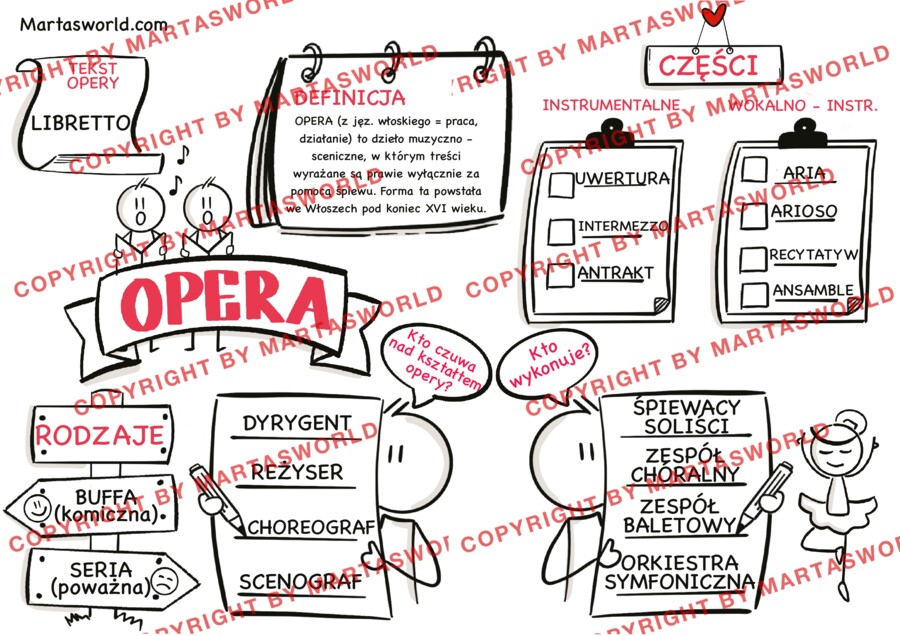 Martasworld.com
TEKST
OPERY
LIBRETTO
DEFINICJA
OPERA (z jęz. włoskiego = praca,
działanie) to dzieło muzyczno -
sceniczne, w którym treści
wyrażane są prawie wyłącznie za
pomocą śpiewu. Forma ta powstała
we Włoszech pod koniec XVI wieku.
CZĘŚCI
INSTRUMENTALNE
UWERTURA
INTERMEZZO
ANTRAKT
WOKALNO - INSTR.
ARIA
ARIOSO
RECYTATYW
ANSAMBLE
OPERA
RODZAJE
BUFFA
(komiczna)
SERIA
(poważna)
Kto czuwa
nad kształtem
opery?
DYRYGENT
REŻYSER
CHOREOGRAF
SCENOGRAF
Kto
wykonuje?
ŚPIEWACY
SOLIŚCI
ZESPÓŁ
CHÓRALNY
ZESPÓŁ
BALETOWY
ORKIESTRA
SYMFONICZNA
COPYRIGHT BY MARTASWORLD
COPYRIGHT BY MARTASWORLD
COPYRIGHT BY MARTASWORLD
COPYRIGHT BY MARTASWORLD
COPYRIGHT BY MARTASWORLD
COPYRIGHT BY MARTASWORLD
COPYRIGHT BY MARTASWORLD
COPYRIGHT BY MARTASWORLD
COPYRIGHT BY MARTASWORLD
COPYRIGHT BY MARTASWORLD